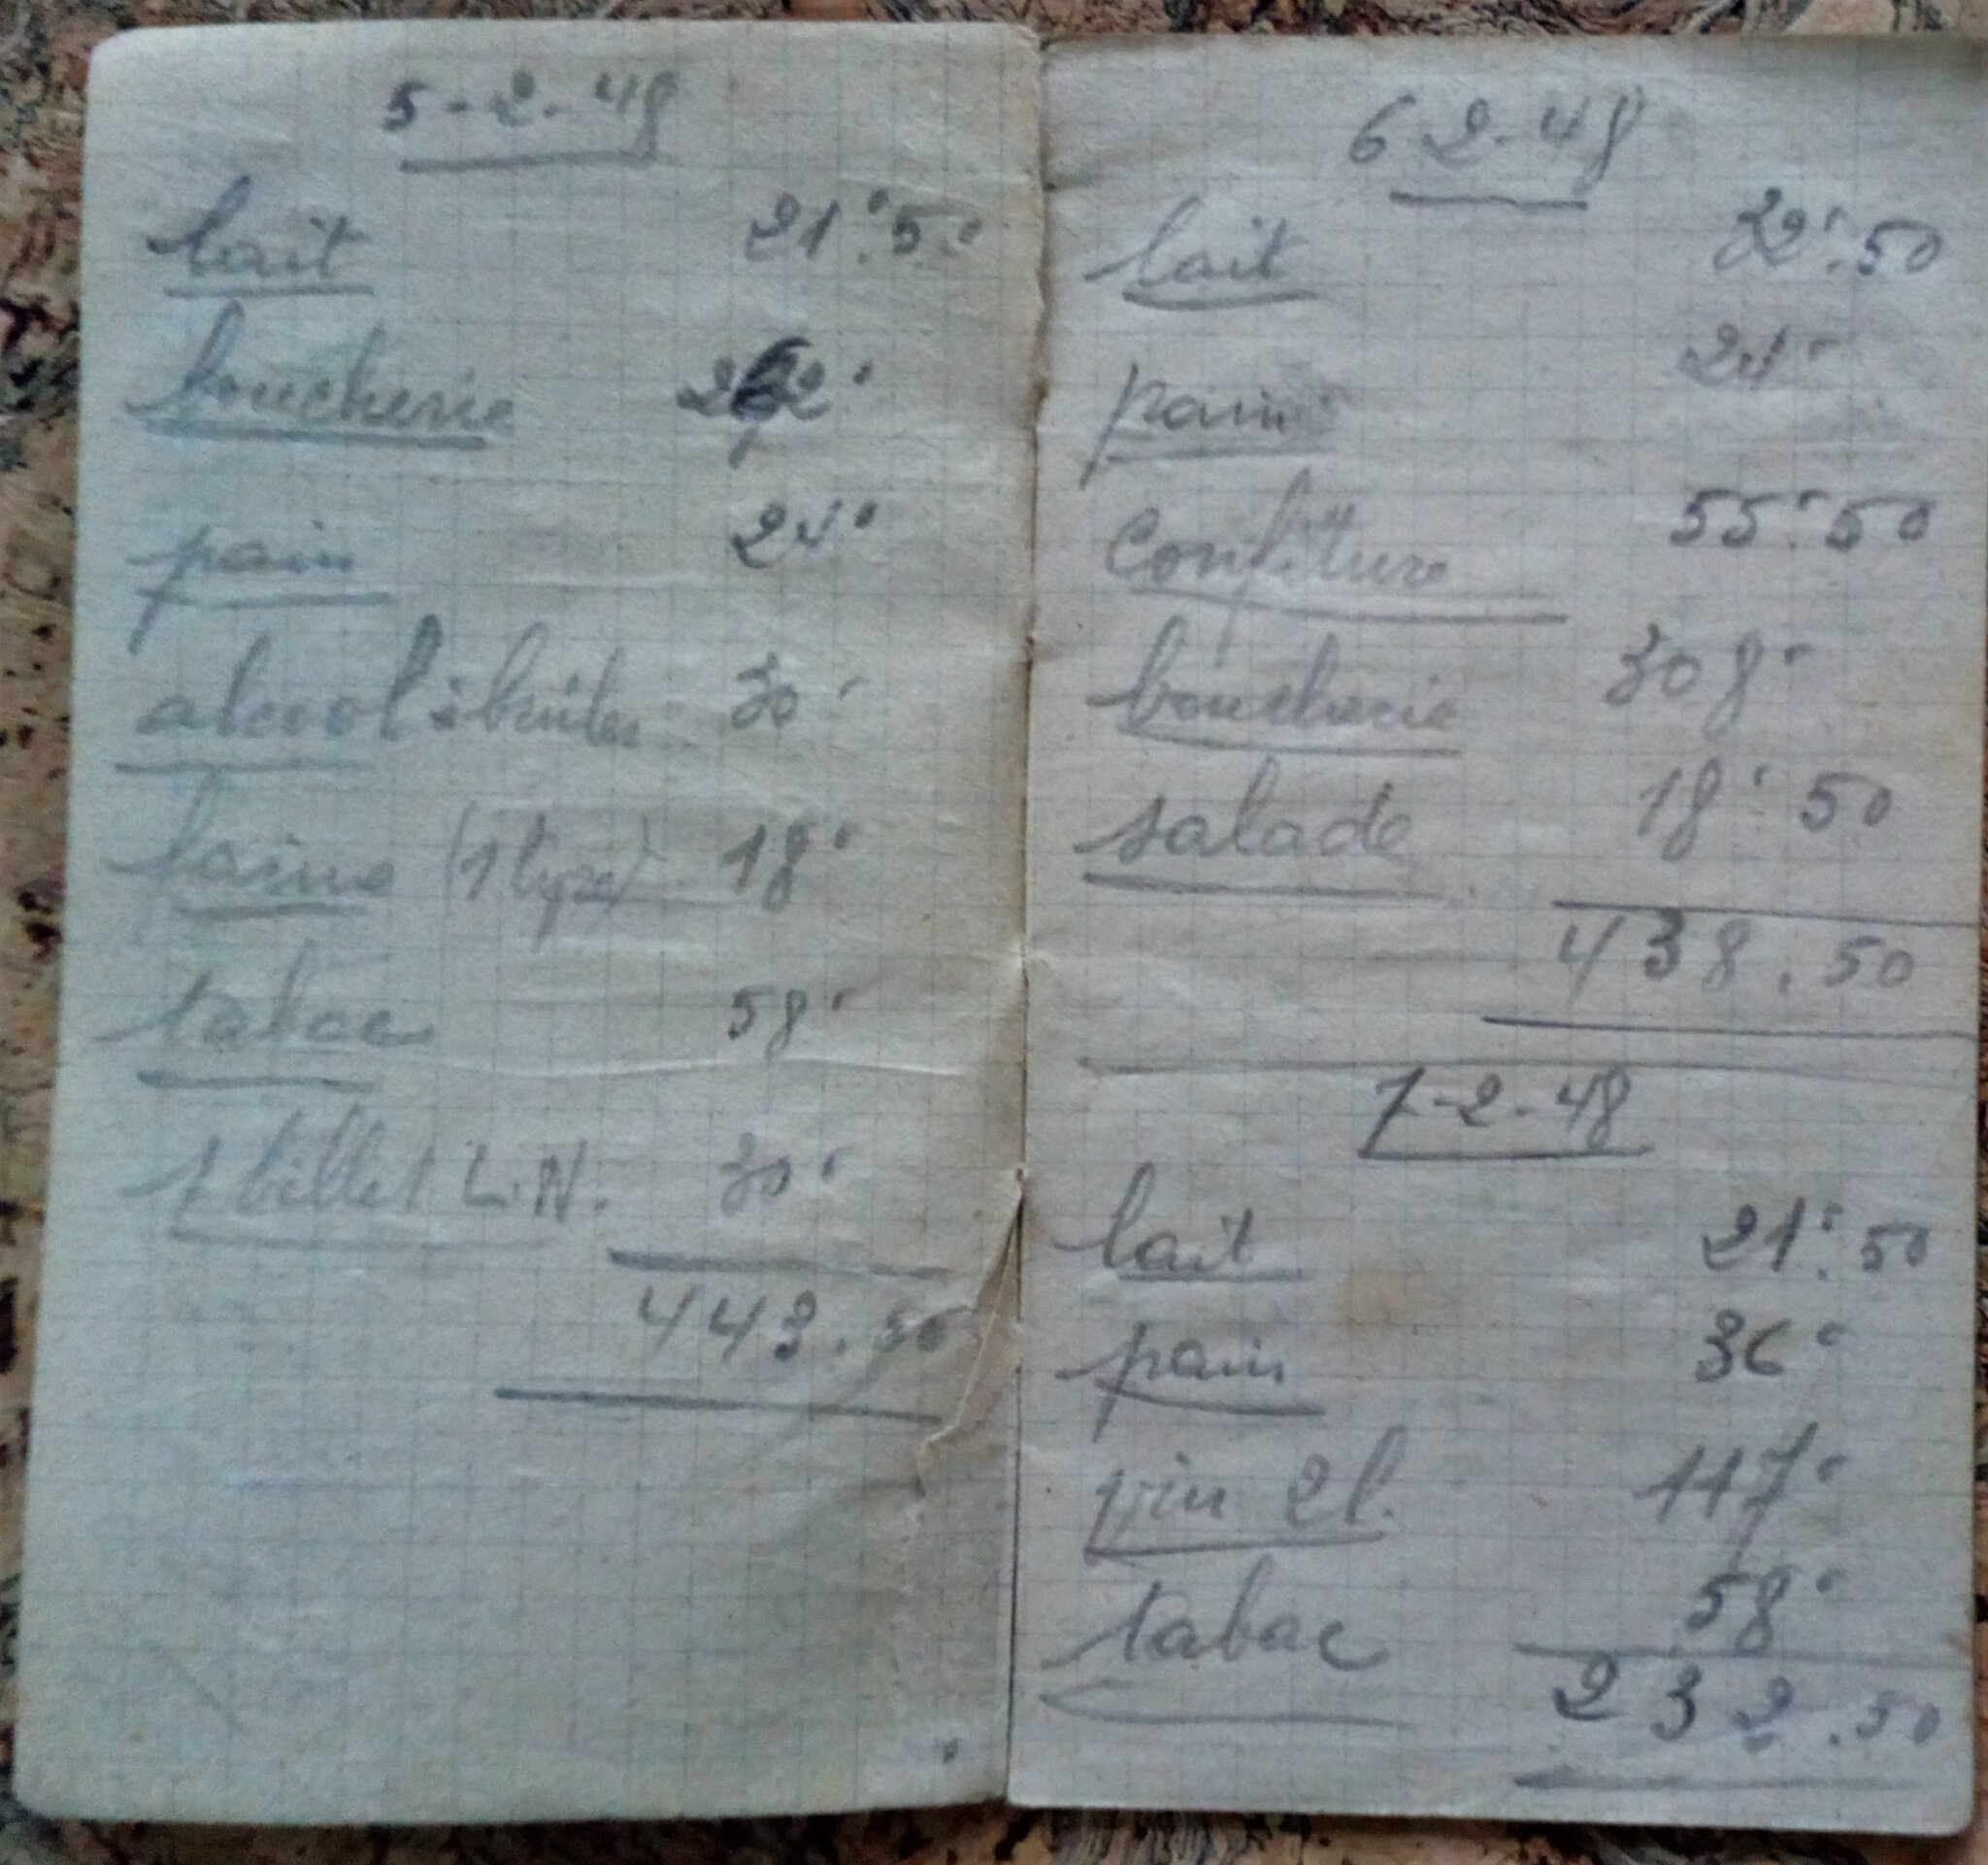 5-2-48
lait 21'.50
boucherie 262'
pain 24'
alcool à brûler 30'
18'
tabac 58'
1 billet L.N. 30'
443.50
6 2-48
lait 32'.50
pain 24'
Confiture 55'.50
boucherie 308'
salade 18' 50
438.50
7-2-48
lait 21'.50
pain 36'
vin 2l. 117'
tabac 58'
232.50